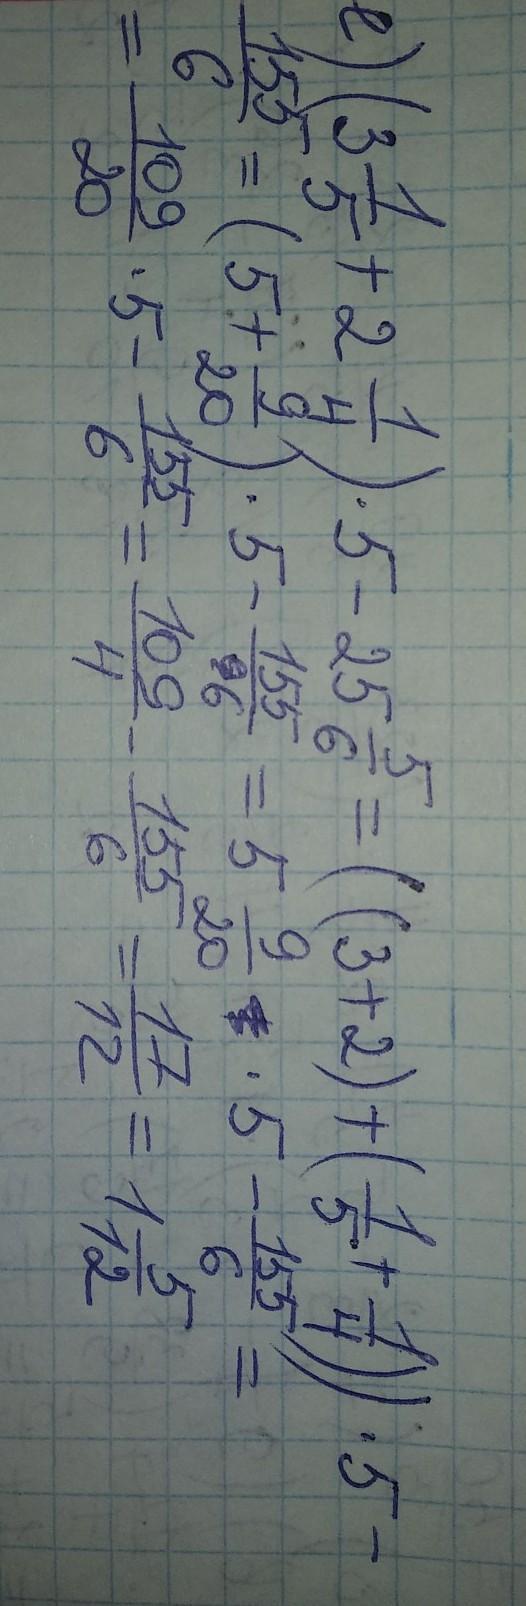 е) (3 1/5 + 2 1/4) · 5 - 25 5/6 = ((3+2) + (1/5 + 1/4)) · 5 -
155/6 = (5 + 9/20) · 5 - 155/6 = 5 9/20 · 5 - 155/6 =
= 109/20 · 5 - 155/6 = 109/4 - 155/6 = 17/12 = 1 5/12